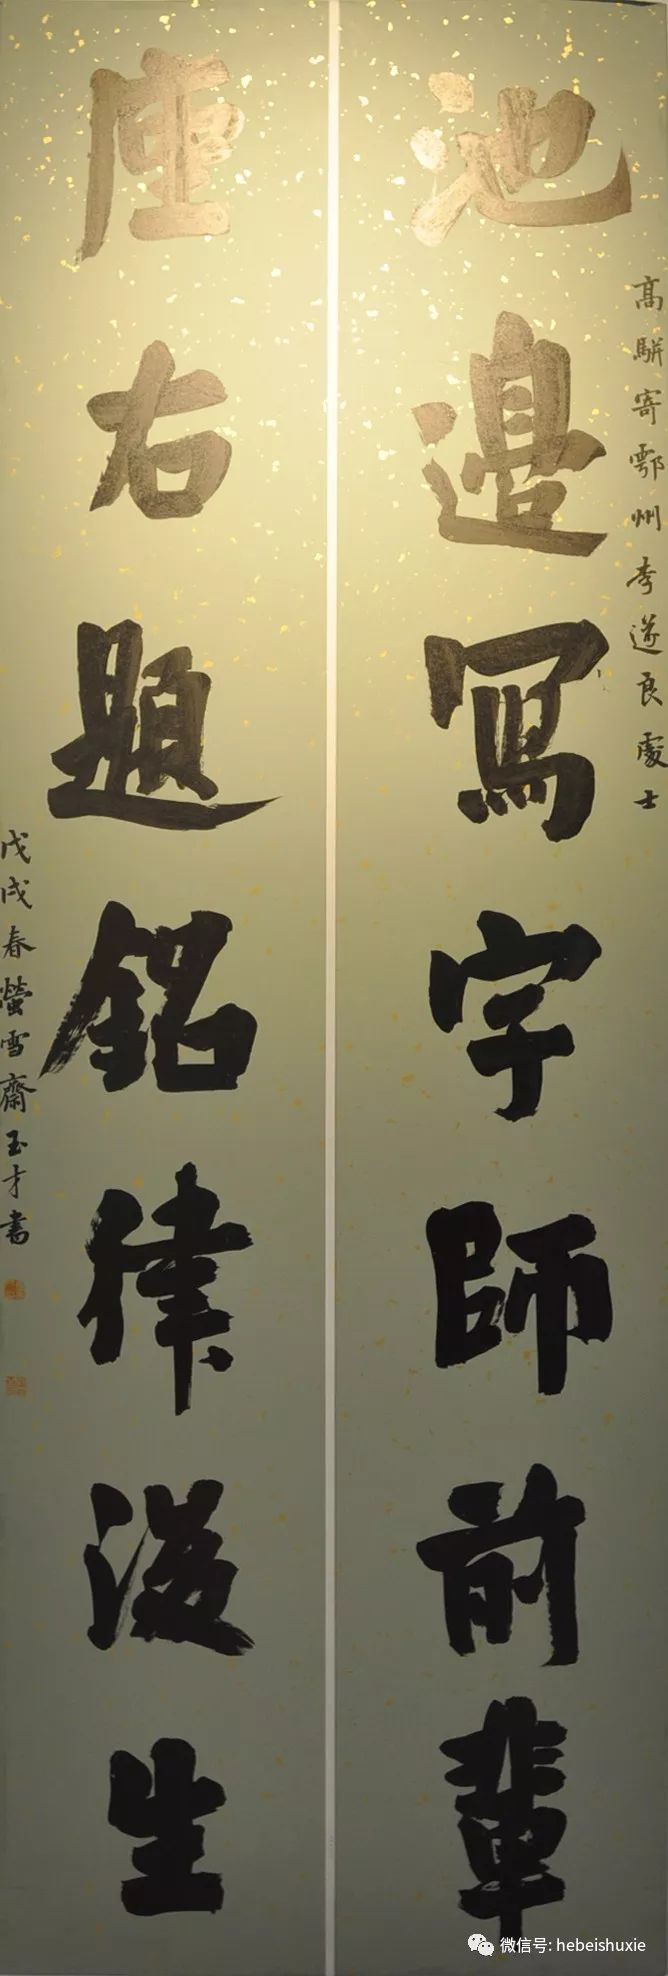 高駢寄鄂州李遂良處士
池邊寫字師前輩
座右題銘律後生
戊戌春螢雪齋玉才書
微信号: hebeishuxie